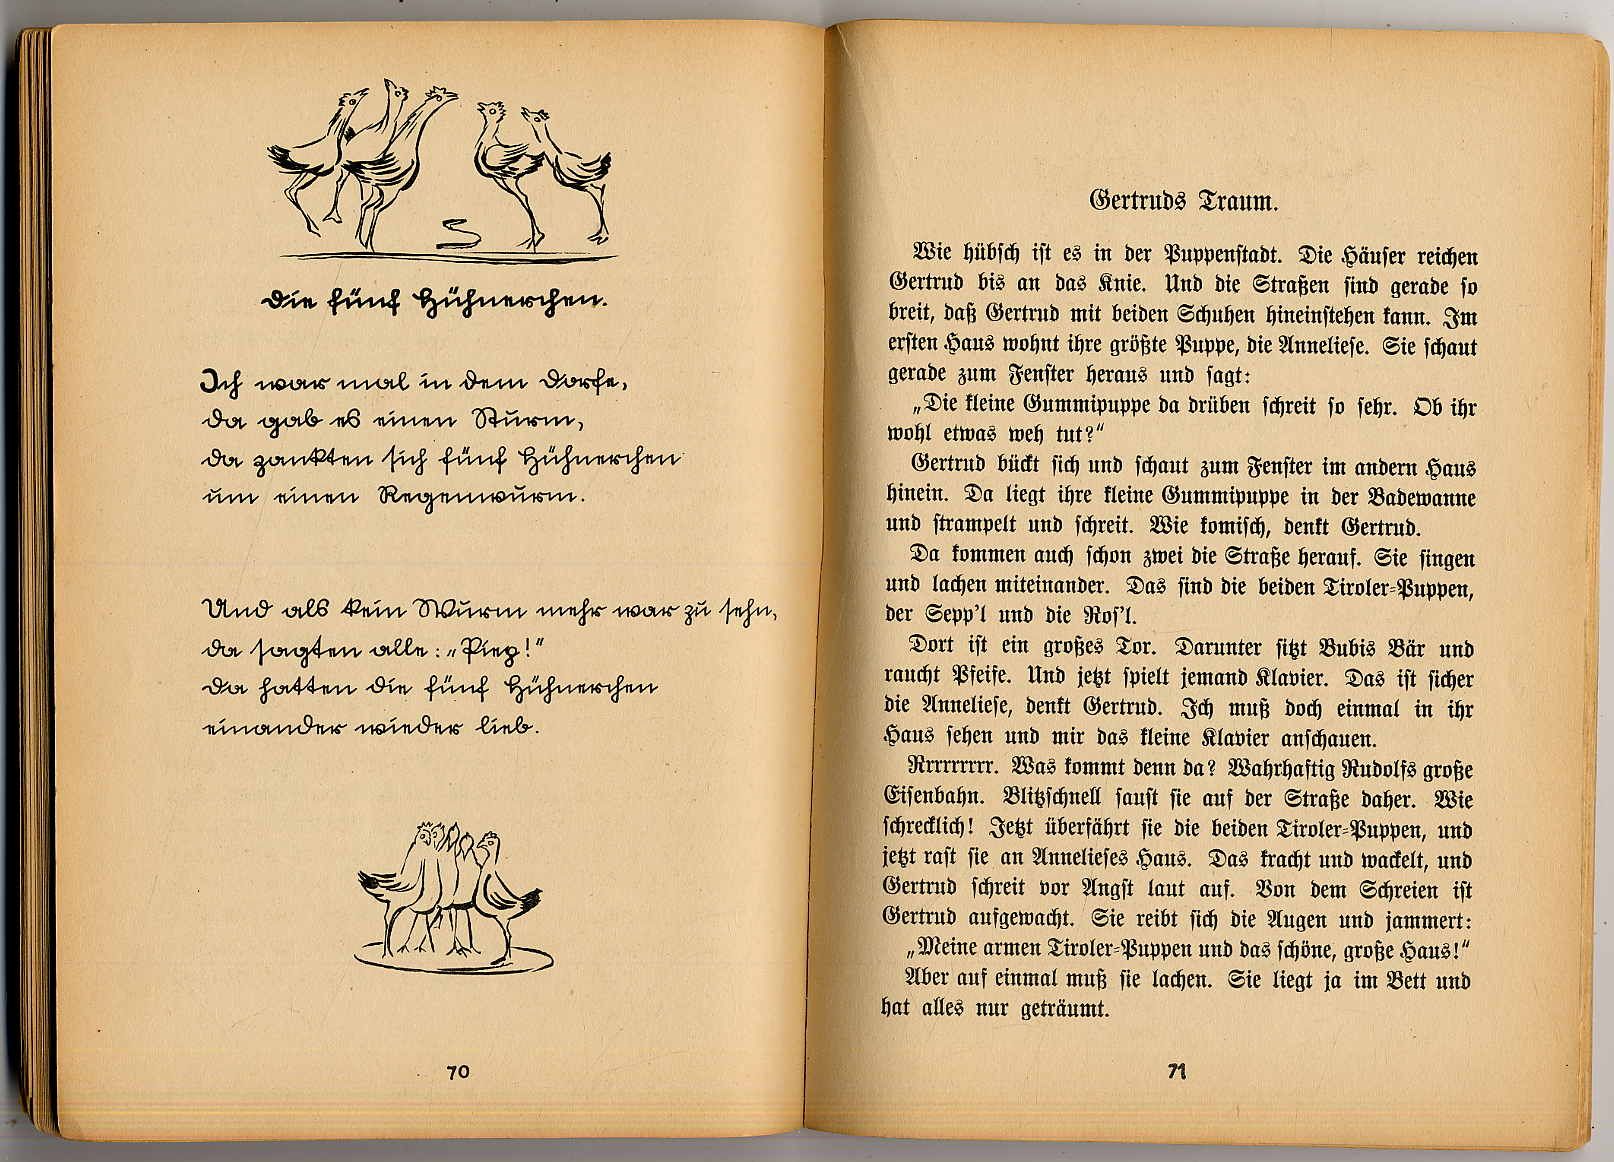 Die fünf Hühnerchen.
Ich war mal in dem Dorfe,
da gab es einen Sturm,
da zankten sich fünf Hühnerchen
um einen Regenwurm.
Und als kein Wurm mehr war zu sehn,
da sagten alle: „Piep!“
Da hatten die fünf Hühnerchen
einander wieder lieb.
70
Gertruds Traum.
Wie hübsch ist es in der Puppenstadt. Die Häuser reichen
Gertrud bis an das Knie. Und die Straßen sind gerade so
breit, daß Gertrud mit beiden Schuhen hineinstehen kann. Im
ersten Haus wohnt ihre größte Puppe, die Anneliese. Sie schaut
gerade zum Fenster heraus und sagt:
„Die kleine Gummipuppe da drüben schreit so sehr. Ob ihr
wohl etwas weh tut?“
Gertrud bückt sich und schaut zum Fenster im andern Haus
hinein. Da liegt ihre kleine Gummipuppe in der Badewanne
und strampelt und schreit. Wie komisch, denkt Gertrud.
Da kommen auch schon zwei die Straße herauf. Sie singen
und lachen miteinander. Das sind die beiden Tiroler-Puppen,
der Sepp'l und die Ros'l.
Dort ist ein großes Tor. Darunter sitzt Bubis Bär und
raucht Pfeife. Und jetzt spielt jemand Klavier. Das ist sicher
die Anneliese, denkt Gertrud. Ich muß doch einmal in ihr
Haus sehen und mir das kleine Klavier anschauen.
Rrrrrrrr. Was kommt denn da? Wahrhaftig Rudolfs große
Eisenbahn. Blitzschnell saust sie auf der Straße daher. Wie
schrecklich! Jetzt überfährt sie die beiden Tiroler-Puppen, und
jetzt rast sie an Annelieses Haus. Das kracht und wackelt, und
Gertrud schreit vor Angst laut auf. Von dem Schreien ist
Gertrud aufgewacht. Sie reibt sich die Augen und jammert:
„Meine armen Tiroler-Puppen und das schöne, große Haus!“
Aber auf einmal muß sie lachen. Sie liegt ja im Bett und
hat alles nur geträumt.
71